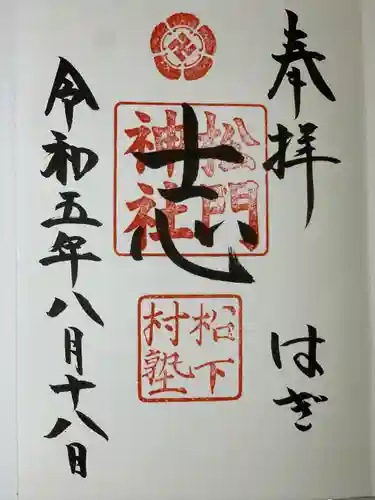 奉拝
はぎ
志
松門神社
松下村塾
令和五年八月十八日